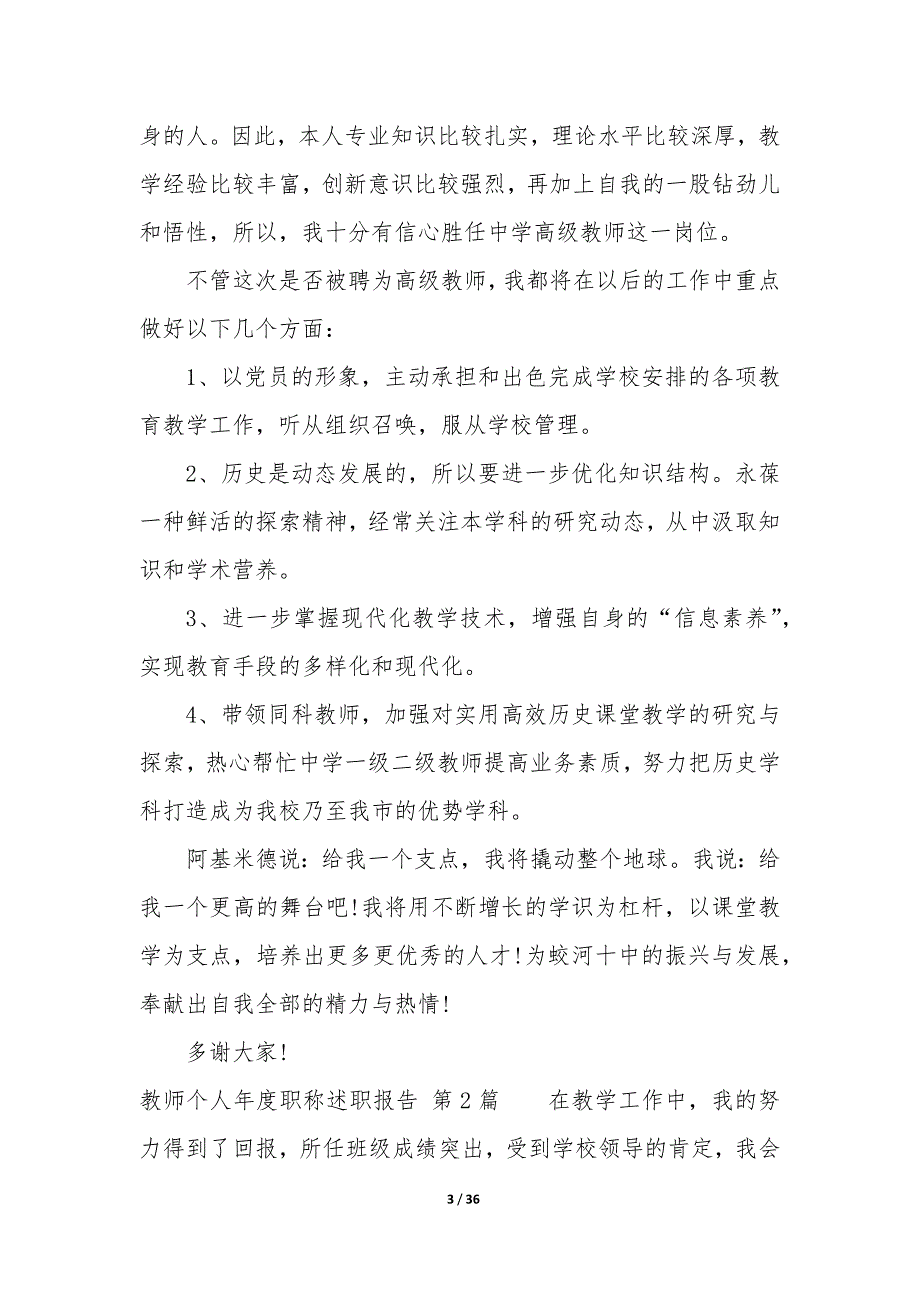 身的人。因此，本人专业知识比较扎实，理论水平比较深厚，教
学经验比较丰富，创新意识比较强烈，再加上自我的一股钻劲儿
和悟性，所以，我十分有信心胜任中学高级教师这一岗位。
不管这次是否被聘为高级教师，我都将在以后的工作中重点
做好以下几个方面：
1、以党员的形象，主动承担和出色完成学校安排的各项教
育教学工作，听从组织召唤，服从学校管理。
2、历史是动态发展的，所以要进一步优化知识结构。永葆
一种鲜活的探索精神，经常关注本学科的研究动态，从中汲取知
识和学术营养。
3、进一步掌握现代化教学技术，增强自身的“信息素养”，
实现教育手段的多样化和现代化。
4、带领同科教师，加强对实用高效历史课堂教学的研究与
探索，热心帮忙中学一级二级教师提高业务素质，努力把历史学
科打造成为我校乃至我市的优势学科。
阿基米德说：给我一个支点，我将撬动整个地球。我说：给
我一个更高的舞台吧!我将用不断增长的学识为杠杆，以课堂教
学为支点，培养出更多更优秀的人才!为蛟河十中的振兴与发展，
奉献出自我全部的精力与热情!
多谢大家!
教师个人年度职称述职报告 第2篇　　在教学工作中，我的努
力得到了回报，所任班级成绩突出，受到学校领导的肯定，我会
3 / 36